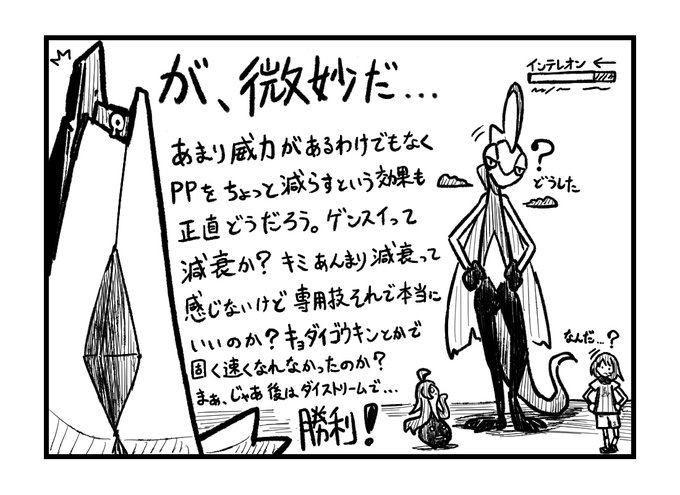 が、微妙だ...
あまり威力があるわけでもなく
PPをちょっと減らすという効果も
正直どうだろう。ゲンスイって
減衰か?キミあんまり減衰って
感じないけど専用技それで本当に
いいのか?キョダイゴウキンとかで
固く速くなれなかったのか?
まぁ、じゃあ後はダイストリームで...
勝利!
インテレオン ←
?
どうした
なんだ...?